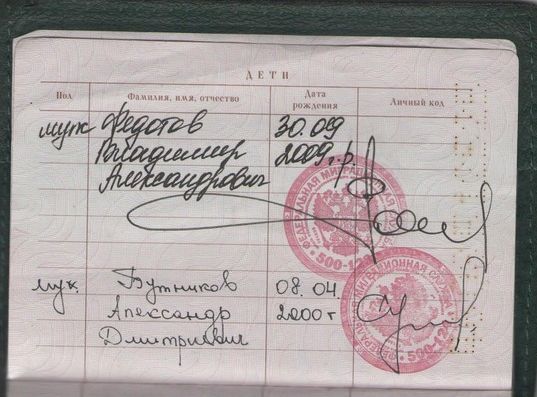 ДЕТИ
Пол Фамилия, имя, отчество Дата рождения Личный код
муж Федотов 30.09
Владимир 2009 г.р.
Александрович
ФЕДЕРАЛЬНАЯ МИГРАЦИОННАЯ
500-12
муж. Бутников 08.04.
Александр 2000 г
Дмитриевич
ФЕДЕРАЛЬНАЯ МИГРАЦИОННАЯ СЛУЖБА
500-12